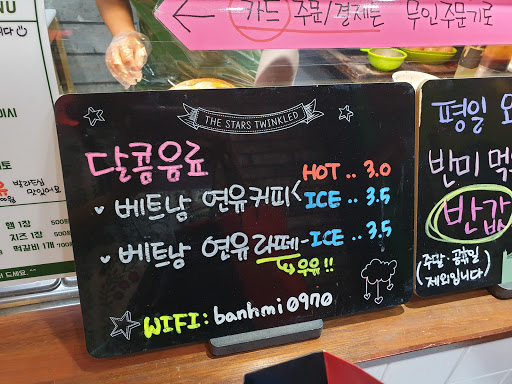 NU
카드 주문/결제는 무인주문기로
THE STARS TWINKLED
달콤음료
베트남 연유커피 < HOT .. 3.0
ICE .. 3.5
베트남 연유라떼 - ICE .. 3.5
우유!!
WIFI : banhmi0970
평일 오
반미 먹
반값
(주말·공휴일
제외입니다)
맛있어요
햄 1장 500
치즈 1장 500
떡갈비 1개